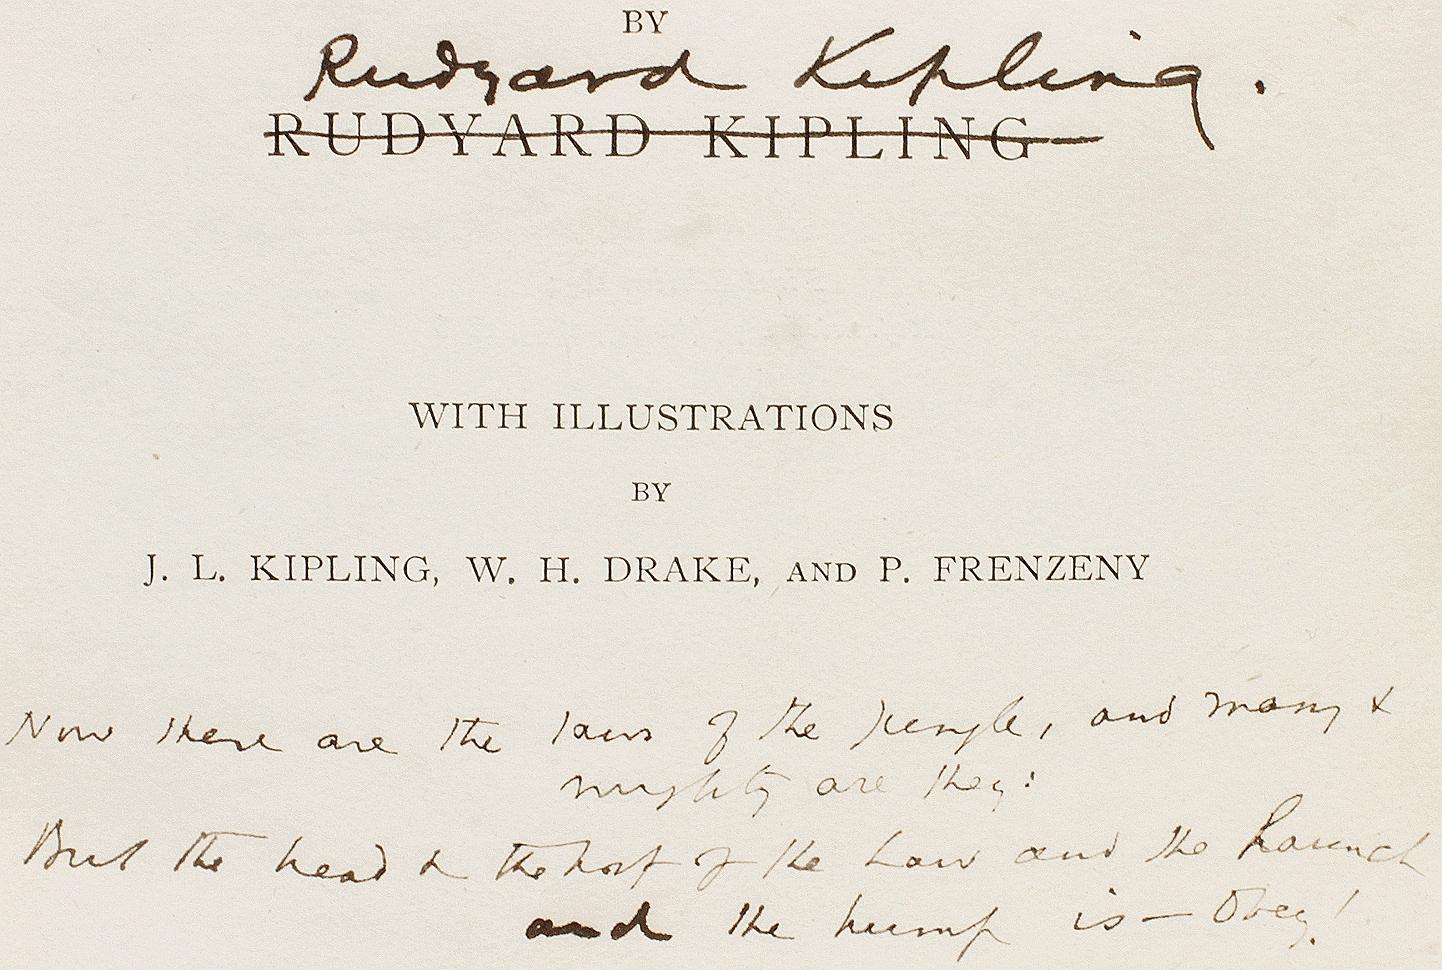 BY
Rudyard Kipling.
RUDYARD KIPLING
WITH ILLUSTRATIONS
BY
J. L. KIPLING, W. H. DRAKE, AND P. FRENZENY
Now these are the laws of the jungle, and many &
mighty are they:
But the head & the hoof of the Law and the haunch
and the hump is — Obey!